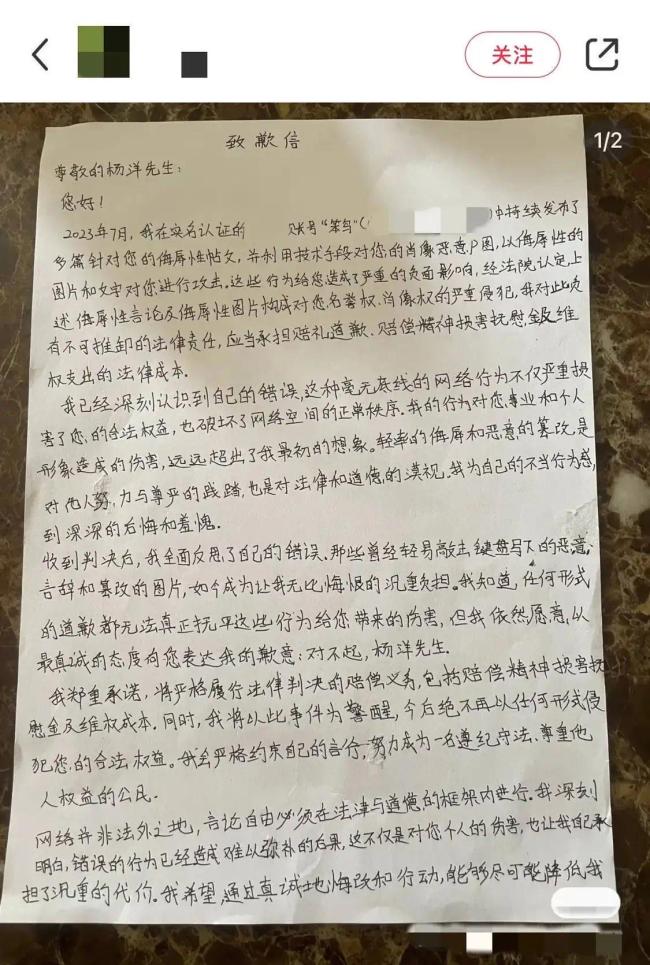 关注
1/2
致歉信
尊敬的杨洋先生：
您好！
2023年7月，我在实名认证的 账号“笨鸟”( )中持续发布了
多篇针对您的侮辱性帖文，并利用技术手段对您的肖像恶意P图，以侮辱性的
图片和文字对您进行攻击。这些行为给您造成了严重的负面影响，经法院认定，上
述侮辱性言论及侮辱性图片构成对您名誉权、肖像权的严重侵犯，我对此负
有不可推卸的法律责任，应当承担赔礼道歉、赔偿精神损害抚慰金及维
权支出的法律成本.
我已经深刻认识到自己的错误，这种毫无底线的网络行为不仅严重损
害了您的合法权益，也破坏了网络空间的正常秩序。我的行为对您事业和个人
形象造成的伤害，远远超出了我最初的想象。轻率的侮辱和恶意的篡改，是
对他人努力与尊严的践踏，也是对法律和道德的漠视。我为自己的不当行为感
到深深的后悔和羞愧.
收到判决后，我全面反思了自己的错误。那些曾经轻易敲击键盘写下的恶意
言辞和篡改的图片，如今成为让我无比悔恨的沉重负担。我知道，任何形式
的道歉都无法真正抚平这些行为给您带来的伤害，但我依然愿意，以
最真诚的态度向您表达我的歉意：对不起，杨洋先生.
我郑重承诺，将严格履行法律判决的赔偿义务，包括赔偿精神损害抚
慰金及维权成本。同时，我将以此事件为警醒，今后绝不再以任何形式侵
犯您的合法权益。我会严格约束自己的言行，努力成为一名遵纪守法、尊重他
人权益的公民.
网络并非法外之地，言论自由必须在法律与道德的框架内进行。我深刻
明白，错误的行为已经造成难以弥补的后果，这不仅是对您个人的伤害，也让我自己承
担了沉重的代价。我希望，通过真诚地悔改和行动，能够尽可能降低我